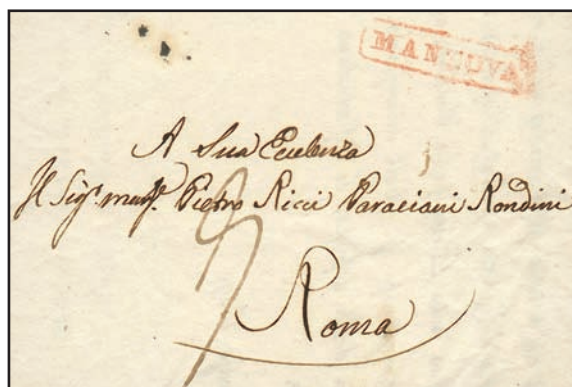 MANTOVA
A Sua Eccelenza
Il Sigr. marche. Pietro Ricci Paraciani Rondini
Roma